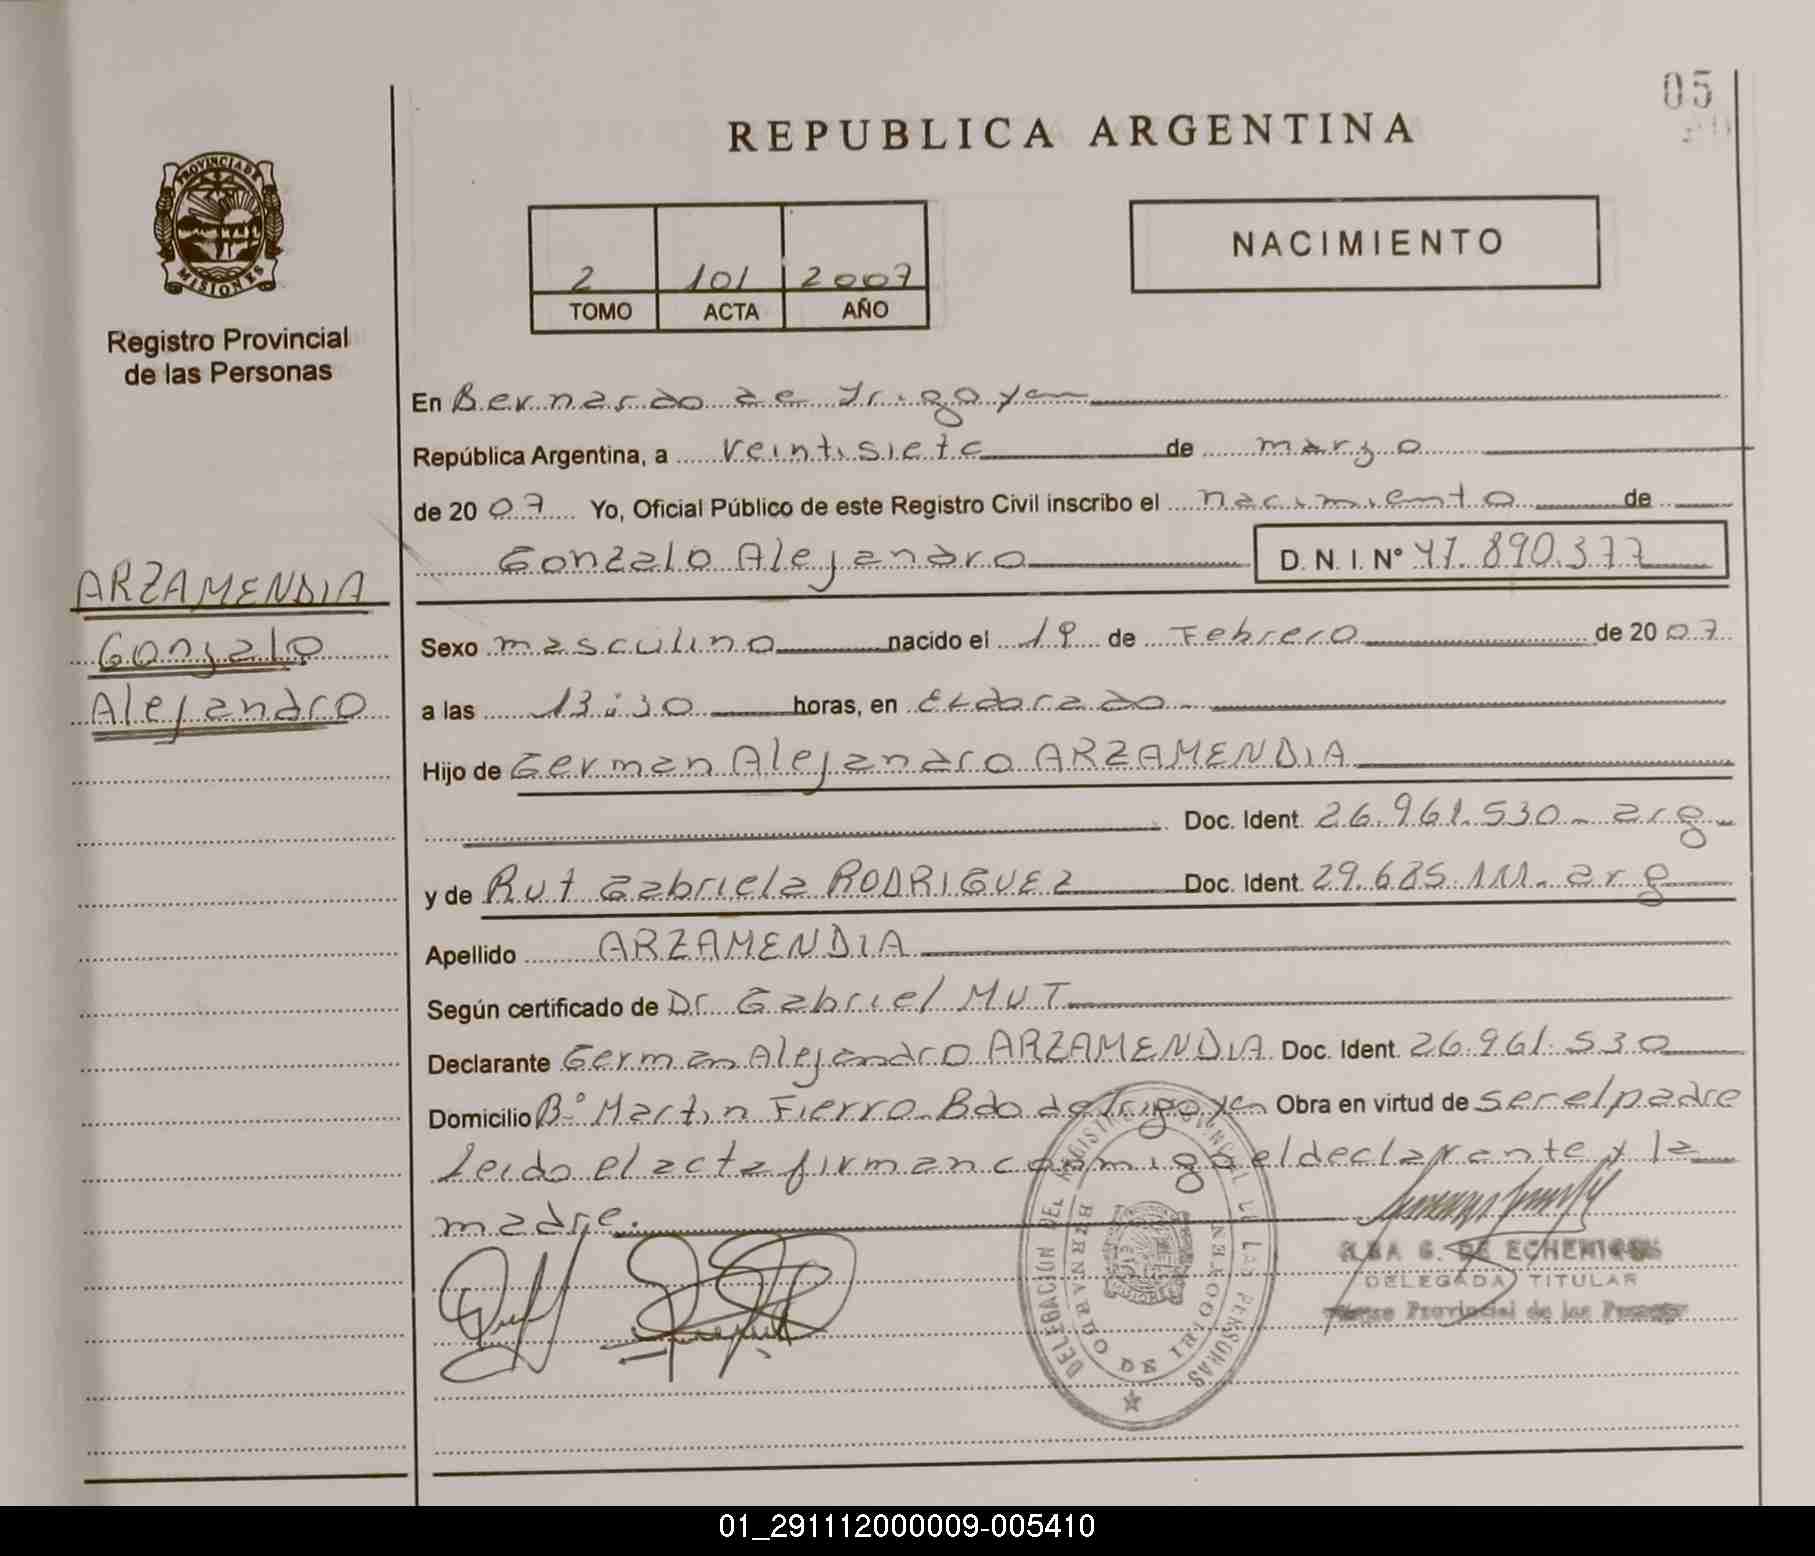 05
REPUBLICA ARGENTINA
PROVINCIA DE
MISIONES
Registro Provincial
de las Personas
2 101 2007
TOMO ACTA AÑO
NACIMIENTO
En Bernardo de Irigoyen
República Argentina, a veintisiete de marzo
de 2007 Yo, Oficial Público de este Registro Civil inscribo el nacimiento de
Gonzalo Alejandro D. N. I. N° 47.890.377
ARZAMENDIA
Gonzalo
Alejandro
Sexo masculino nacido el 19 de Febrero de 2007
a las 13:30 horas, en Eldorado
Hijo de German Alejandro ARZAMENDIA
Doc. Ident. 26.961.530 - arg
y de Rut Gabriela RODRIGUEZ Doc. Ident. 29.685.111. arg
Apellido ARZAMENDIA
Según certificado de Dr. Gabriel MUT
Declarante German Alejandro ARZAMENDIA Doc. Ident. 26.961.530
Domicilio B° Martin Fierro Bdo de Irigoyen Obra en virtud de ser el padre
Leido el acta firman conmigo el declarante y la
madre.
DELEGACION DEL REGISTRO PROVINCIAL DE LAS PERSONAS
BERNARDO DE IRIGOYEN
G. DE ECHENIQUE
DELEGADA TITULAR
Provincial de las
01_291112000009-005410